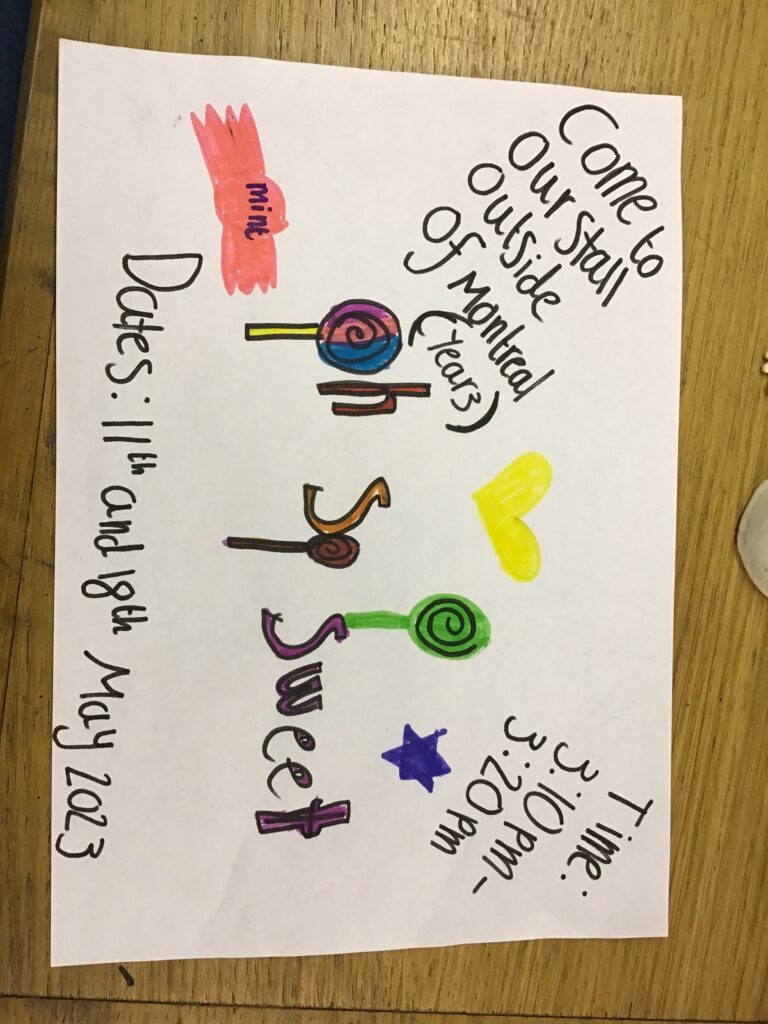 Come to
our stall
outside
of Montreal
(Year3)
Time:
3:10 pm-
3:20 pm
Oh So Sweet
mint
Dates: 11th and 18th May 2023